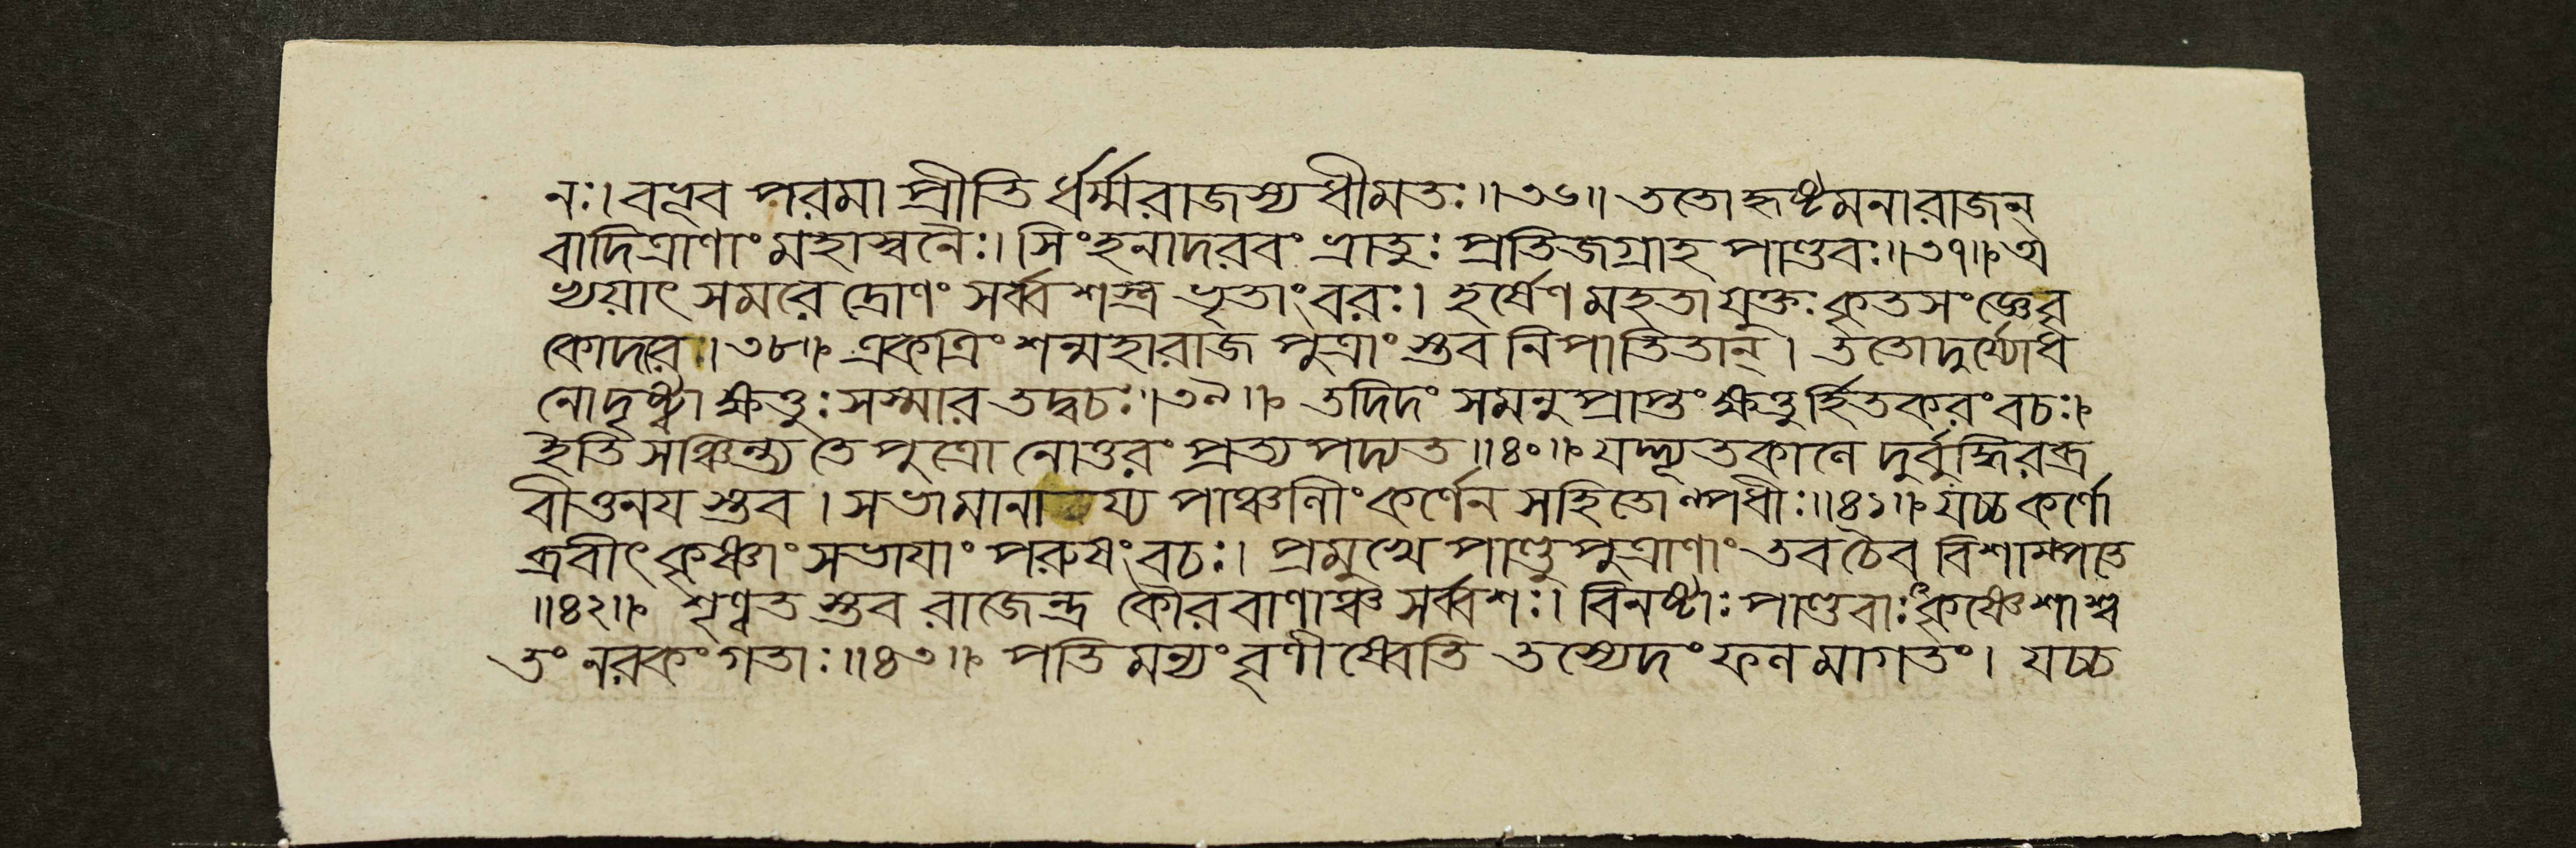 নঃ। বভূব পরমা প্রীতি র্ধর্ম্মরাজস্য ধীমতঃ॥৩৬॥ ততো হৃষ্টমনা রাজন্
বাদিত্রাণাং মহাস্বনৈঃ। সিংহনাদরবং ভ্রাতুঃ প্রতিজগ্রাহ পাণ্ডবঃ॥৩৭॥ অ
ভ্যয়াৎ সমরে দ্রোণং সর্ব্বশস্ত্র ভৃতাংবরঃ। হর্ষেণ মহতা যুক্তঃ কৃতসংজ্ঞে বৃ
কোদরে॥৩৮॥ একত্রিংশন্মহারাজ পুত্রাং স্তব নিপাতিতান্। ততো দুর্য্যোধ
নো দৃষ্ট্বা ক্ষত্তুঃ সস্মার তদ্বচঃ॥৩৯॥ তদিদং সমনুপ্রাপ্তং ক্ষত্তুর্হিতকরং বচঃ।
ইতি সঞ্চিন্ত্য তে পুত্রো নোত্তরং প্রত্যপদ্যত॥৪০॥ যদ্দ্যূতকালে দুর্বুদ্ধিরব্র
বীত্তনয স্তব। সভামানা য্য পাঞ্চালীং কর্ণেন সহিতোল্পধীঃ॥৪১॥ যচ্চ কর্ণো
ব্রবীৎ কৃষ্ণাং সভাযাং পরুষং বচঃ। প্রমুখে পাণ্ডুপুত্রাণাং তব চৈব বিশাম্পতে
॥৪২॥ শৃণ্বত স্তব রাজেন্দ্র কৌরবাণাঞ্চ সর্ব্বশঃ। বিনষ্টাঃ পাণ্ডবাঃ কৃষ্ণে শাশ্ব
তং নরকং গতাঃ॥৪৩॥ পতি মন্যং বৃণীষ্বেতি তস্যেদং ফলমাগতং। যচ্চ